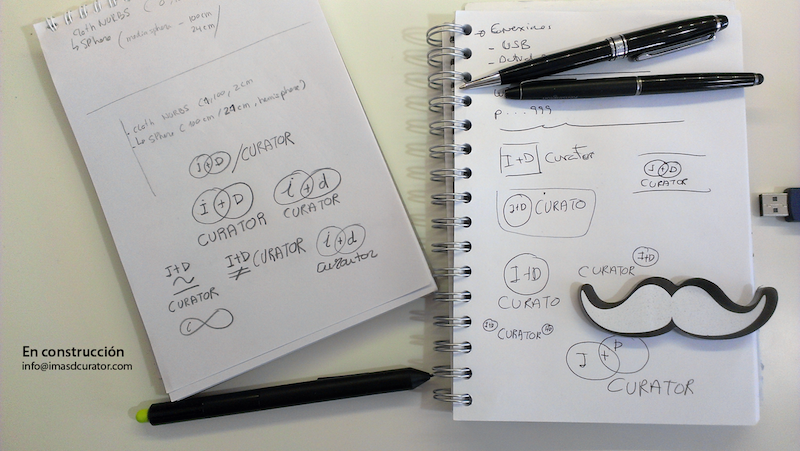 cloth NURBS
↳ SPhere (media sphere - 100cm
24cm)
- cloth NURBS (1,100, 2cm
↳ SPhere (100cm / 24cm, hemisphere)
I+D / CURATOR
I+D
CURATOR
i+d
CURATOR
I+D
~
CURATOR
I+D ≠ CURATOR
i+d
curator
C
→ Conexiones
- USB
p....999
I+D Curator
I+D
CURATOR
I+D CURATO
I+D
CURATO
CURATOR I+D
I+D CURATOR
I+D
CURATOR
En construcción
info@imasdcurator.com